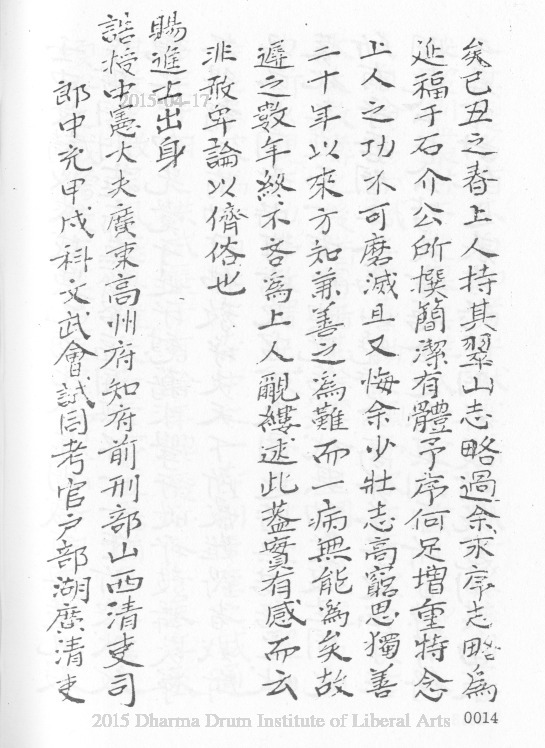 矣己丑之春上人持其翠山志略過余求序志略為
延福于石介公所撰簡潔有體予序何足增重特念
上人之功不可磨滅且又悔余少壯志高窮思獨善
二十年以來方知兼善之為難而一病無能為矣故
遲之數年終不吝為上人覼縷述此葢實有感而云
非敢卑論以儕俗也
賜進士出身
誥授中憲大夫廣東高州府知府前刑部山西清吏司
郎中充甲戌科文武會試同考官戶部湖廣清吏
2015-04-17
2015 Dharma Drum Institute of Liberal Arts
0014